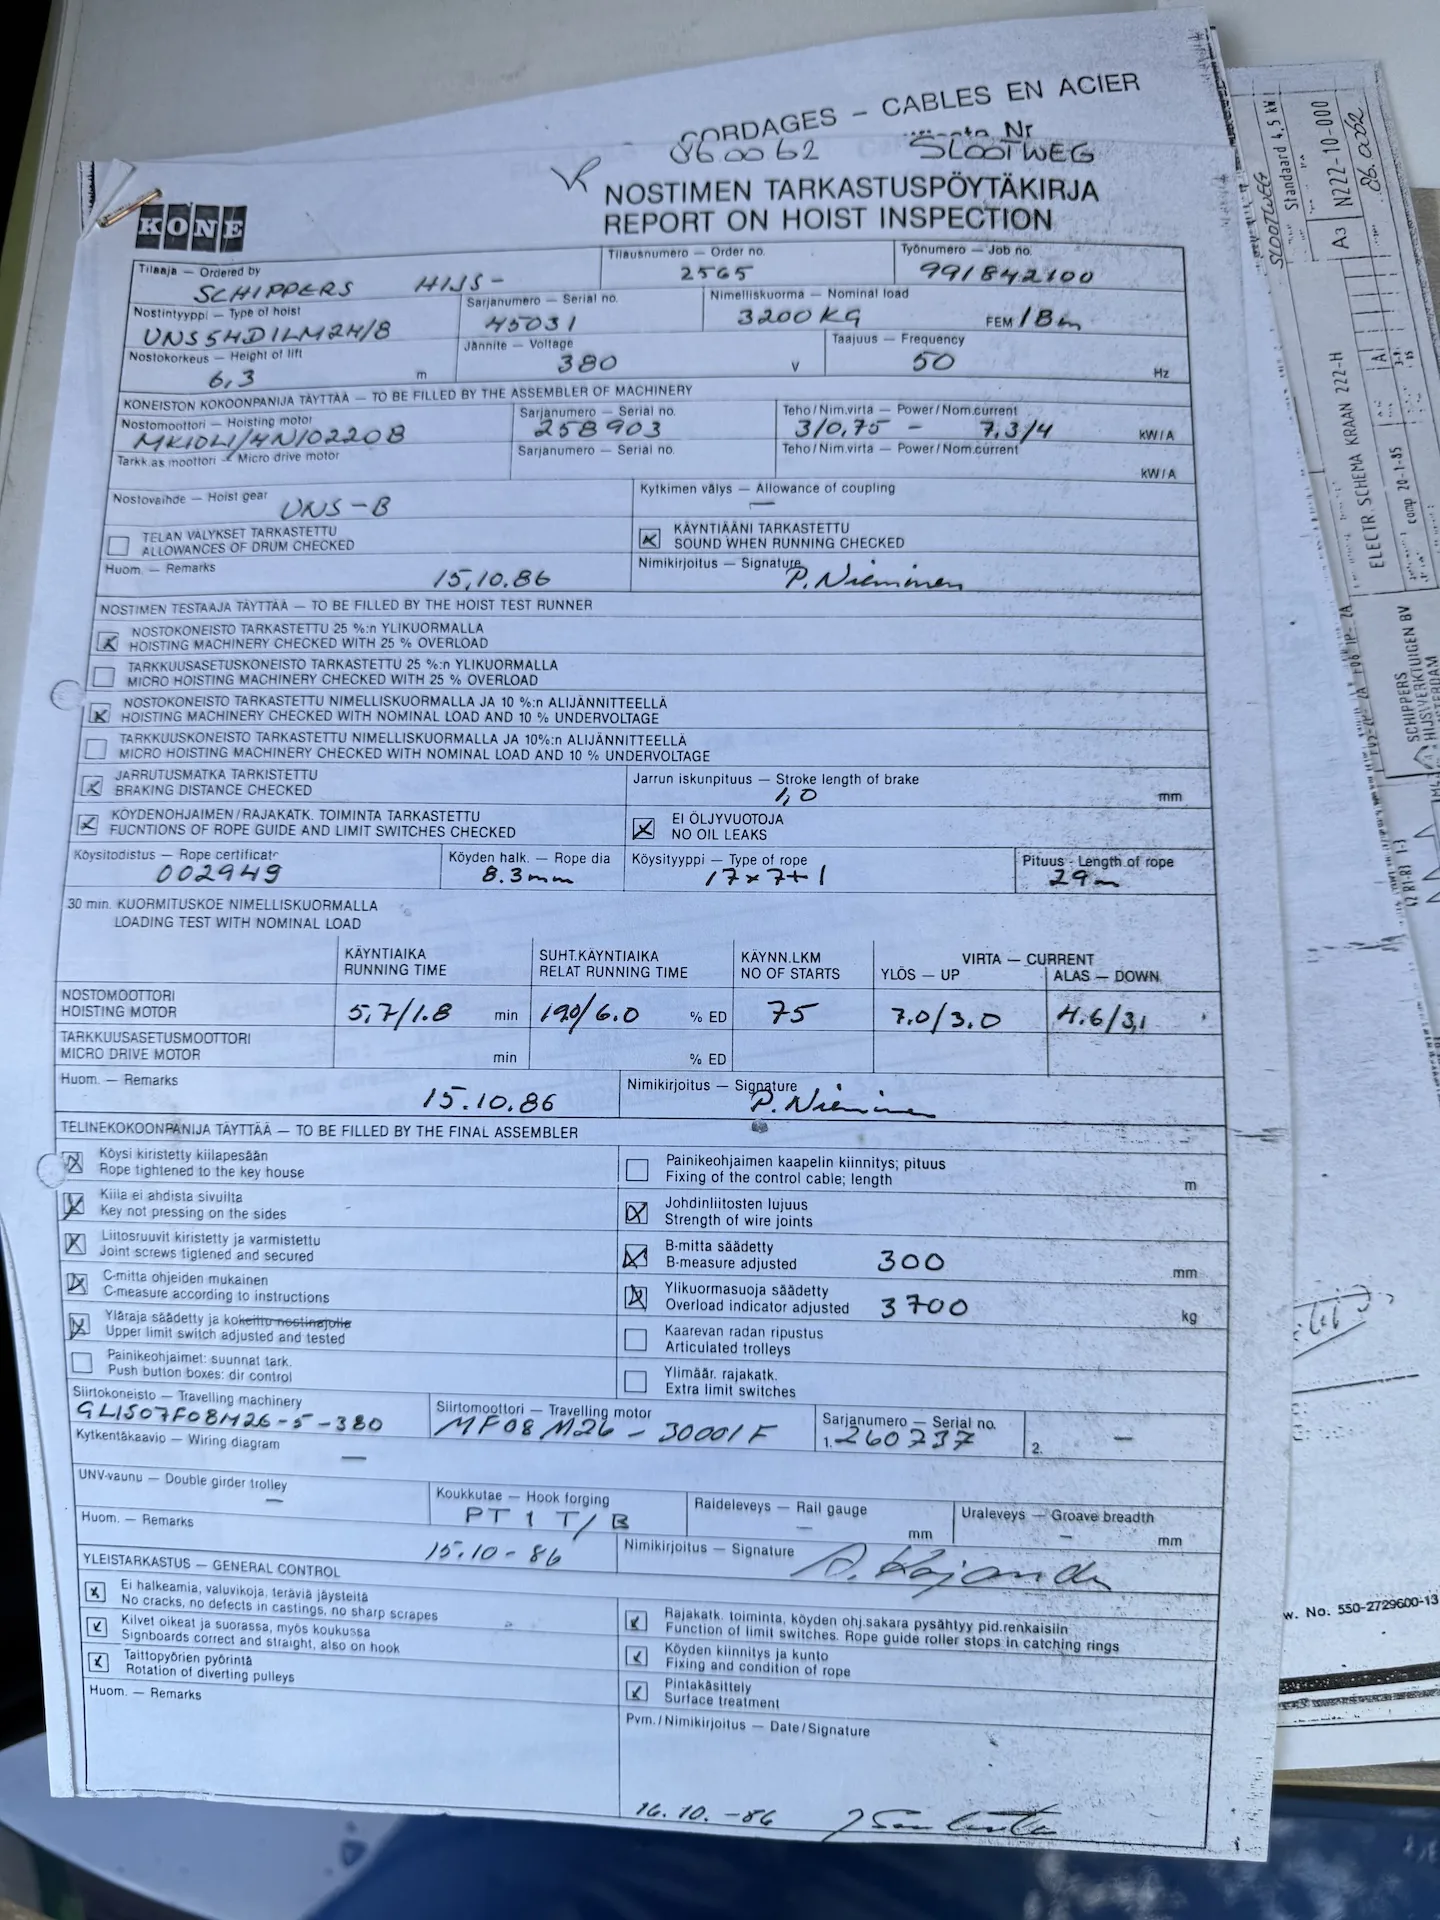 CORDAGES – CABLES EN ACIER
Nr
060062 SLOOTWEG
KONE
NOSTIMEN TARKASTUSPÖYTÄKIRJA
REPORT ON HOIST INSPECTION
Tilaaja — Ordered by SCHIPPERS HIJS-
Tilausnumero — Order no. 2565
Työnumero — Job no. 991842100
Nostintyyppi — Type of hoist UNS54D1LM24/8
Sarjanumero — Serial no. 45031
Nimelliskuorma — Nominal load 3200 KG FEM 1Bm
Nostokorkeus — Height of lift 6,3 m
Jännite — Voltage 380 V
Taajuus — Frequency 50 Hz
KONEISTON KOKOONPANIJA TÄYTTÄÄ — TO BE FILLED BY THE ASSEMBLER OF MACHINERY
Nostomoottori — Hoisting motor
Sarjanumero — Serial no. 258903
Teho/Nim.virta — Power/Nom.current 3/0,75 – 7,3/4 kW/A
Tarkk.as moottori — Micro drive motor
Sarjanumero — Serial no.
Teho/Nim.virta — Power/Nom.current kW/A
Nostovaihde — Hoist gear UNS-B
Kytkimen välys — Allowance of coupling —
TELAN VÄLYKSET TARKASTETTU
ALLOWANCES OF DRUM CHECKED
KÄYNTIÄÄNI TARKASTETTU
SOUND WHEN RUNNING CHECKED
Huom. — Remarks 15.10.86
Nimikirjoitus — Signature P. Nieminen
NOSTIMEN TESTAAJA TÄYTTÄÄ — TO BE FILLED BY THE HOIST TEST RUNNER
NOSTOKONEISTO TARKASTETTU 25 %:n YLIKUORMALLA
HOISTING MACHINERY CHECKED WITH 25 % OVERLOAD
TARKKUUSASETUSKONEISTO TARKASTETTU 25 %:n YLIKUORMALLA
MICRO HOISTING MACHINERY CHECKED WITH 25 % OVERLOAD
NOSTOKONEISTO TARKASTETTU NIMELLISKUORMALLA JA 10 %:n ALIJÄNNITTEELLÄ
HOISTING MACHINERY CHECKED WITH NOMINAL LOAD AND 10 % UNDERVOLTAGE
TARKKUUSKONEISTO TARKASTETTU NIMELLISKUORMALLA JA 10%:n ALIJÄNNITTEELLÄ
MICRO HOISTING MACHINERY CHECKED WITH NOMINAL LOAD AND 10 % UNDERVOLTAGE
JARRUTUSMATKA TARKISTETTU
BRAKING DISTANCE CHECKED
Jarrun iskunpituus — Stroke length of brake
1,0 mm
KÖYDENOHJAIMEN/RAJAKATK. TOIMINTA TARKASTETTU
FUCNTIONS OF ROPE GUIDE AND LIMIT SWITCHES CHECKED
EI ÖLJYVUOTOJA
NO OIL LEAKS
Köysitodistus — Rope certificate 002949
Köyden halk. — Rope dia 8.3mm
Köysityyppi — Type of rope 17x7+1
Pituus - Length of rope 29m
30 min. KUORMITUSKOE NIMELLISKUORMALLA
LOADING TEST WITH NOMINAL LOAD
KÄYNTIAIKA
RUNNING TIME
SUHT.KÄYNTIAIKA
RELAT RUNNING TIME
KÄYNN.LKM
NO OF STARTS
VIRTA — CURRENT
YLÖS — UP ALAS — DOWN
NOSTOMOOTTORI
HOISTING MOTOR 5,7/1.8 min 19.0/6.0 % ED 75 7.0/3.0 4.6/3,1
TARKKUUSASETUSMOOTTORI
MICRO DRIVE MOTOR min % ED
Huom. — Remarks 15.10.86
Nimikirjoitus — Signature P. Nieminen
TELINEKOKOONPANIJA TÄYTTÄÄ — TO BE FILLED BY THE FINAL ASSEMBLER
Köysi kiristetty kiilapesään
Rope tightened to the key house
Painikeohjaimen kaapelin kiinnitys; pituus
Fixing of the control cable; length m
Kiila ei ahdista sivuilta
Key not pressing on the sides
Johdinliitosten lujuus
Strength of wire joints
Liitosruuvit kiristetty ja varmistettu
Joint screws tigtened and secured
B-mitta säädetty
B-measure adjusted 300 mm
C-mitta ohjeiden mukainen
C-measure according to instructions
Ylikuormasuoja säädetty
Overload indicator adjusted 3700 kg
Yläraja säädetty ja kokeiltu nostinajolla
Upper limit switch adjusted and tested
Kaarevan radan ripustus
Articulated trolleys
Painikeohjaimet: suunnat tark.
Push button boxes: dir control
Ylimäär. rajakatk.
Extra limit switches
Siirtokoneisto — Travelling machinery
GLIS07F08M26-5-380
Siirtomoottori — Travelling motor
MF08M26 - 30001F
Sarjanumero — Serial no.
1. 260237 2. —
Kytkentäkaavio — Wiring diagram —
UNV-vaunu — Double girder trolley —
Koukkutae — Hook forging PT 1 T/B
Raideleveys — Rail gauge — mm
Uraleveys — Groave breadth — mm
Huom. — Remarks 15.10-86
Nimikirjoitus — Signature
YLEISTARKASTUS — GENERAL CONTROL
Ei halkeamia, valuvikoja, teräviä jäysteitä
No cracks, no defects in castings, no sharp scrapes
Rajakatk. toiminta, köyden ohj.sakara pysähtyy pid.renkaisiin
Function of limit switches. Rope guide roller stops in catching rings
Kilvet oikeat ja suorassa, myös koukussa
Signboards correct and straight, also on hook
Köyden kiinnitys ja kunto
Fixing and condition of rope
Taittopyörien pyörintä
Rotation of diverting pulleys
Pintakäsittely
Surface treatment
Huom. — Remarks
Pvm./Nimikirjoitus — Date/Signature
16.10.-86
SLOOTWEG
Standaard 4,5 kW
A3 N222-10-000
86.0062
ELECTR. SCHEMA KRAAN 222-H
comp 20-1-85
SCHIPPERS
HIJSWERKTUIGEN BV
w. No. 550-2729600-13